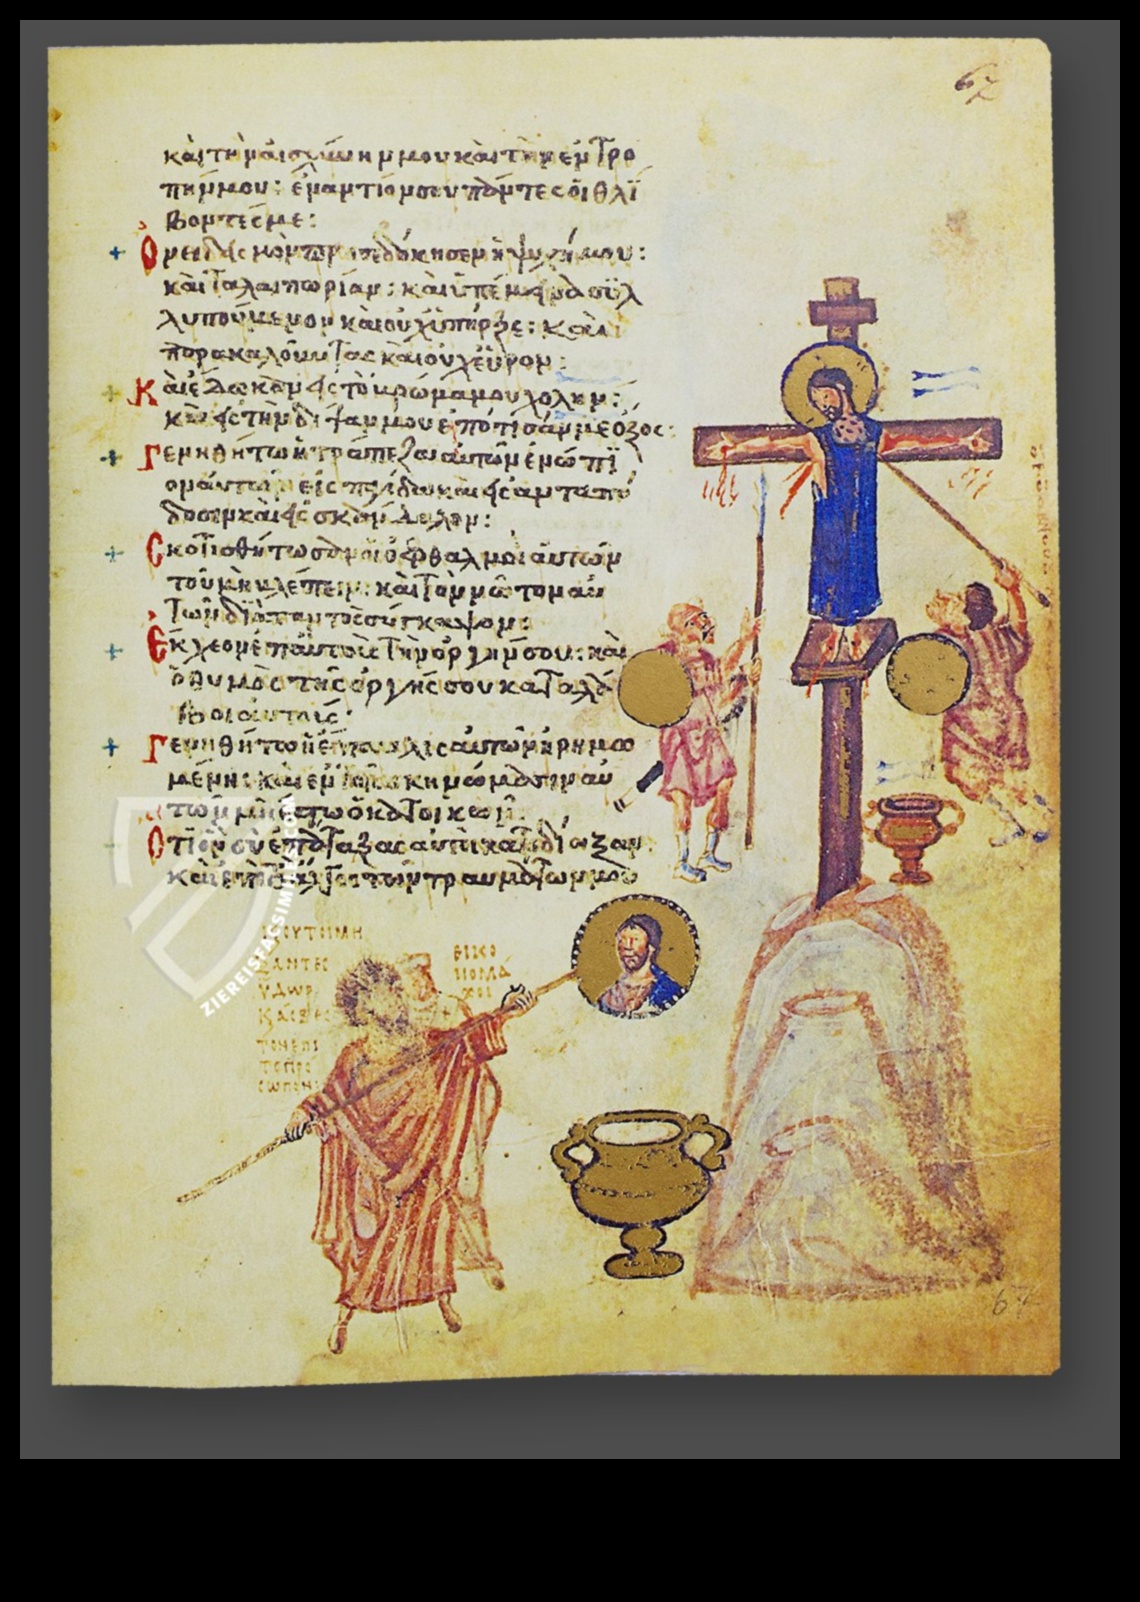 67
καὶ τὴν αἰσχύνην μου καὶ τὴν ἐντρο
πήν μου: ἐναντίον σου πάντες οἱ θλί
βοντές με:
Ὀνειδισμὸν προσεδόκησεν ἡ ψυχή μου:
καὶ ταλαιπωρίαν: καὶ ὑπέμεινα συλ
λυπούμενον καὶ οὐχ ὑπῆρξε: καὶ
παρακαλοῦντας καὶ οὐχ εὗρον:
Καὶ ἔδωκαν εἰς τὸ βρῶμά μου χολήν:
καὶ εἰς τὴν δίψαν μου ἐπότισάν με ὄξος:
Γενηθήτω ἡ τράπεζα αὐτῶν ἐνώπι
ον αὐτῶν εἰς παγίδα καὶ εἰς ἀνταπό
δοσιν καὶ εἰς σκάνδαλον:
Σκοτισθήτωσαν οἱ ὀφθαλμοὶ αὐτῶν
τοῦ μὴ βλέπειν: καὶ τὸν νῶτον αὐ
τῶν διαπαντὸς σύγκαψον:
Ἔκχεον ἐπ αὐτοὺς τὴν ὀργήν σου: καὶ
ὁ θυμὸς τῆς ὀργῆς σου καταλά
βοι αὐτούς:
Γενηθήτω ἡ ἔπαυλις αὐτῶν ἠρημω
μένη: καὶ ἐν τοῖς σκηνώμασιν αὐ
τῶν μὴ ἔστω ὁ κατοικῶν:
Ὅτι ὃν σὺ ἐπάταξας αὐτοὶ κατεδίωξαν
καὶ ἐπὶ τὸ ἄλγος τῶν τραυμάτων μου
ὕδωρ
τον ἐπι
το προ
σωπον
εικο
νομά
χοι
67
ZIEREISFACSIMILES.COM